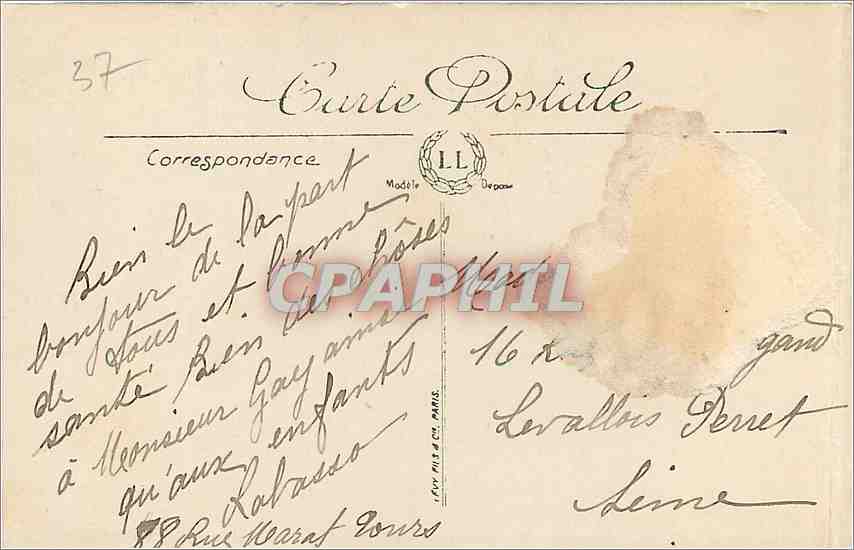 37
Carte Postale
Correspondance
LL
Modèle Déposé
Bien le
bonjour de la part
de tous et bonne
santé Bien des chôses
à Monsieur Gay ainsi
qu'aux enfants
Rabasso
88 Rue Marat Tours
LEVY FILS & Cie, PARIS.
CPAPHIL
16
gand
Levallois Perret
Seine